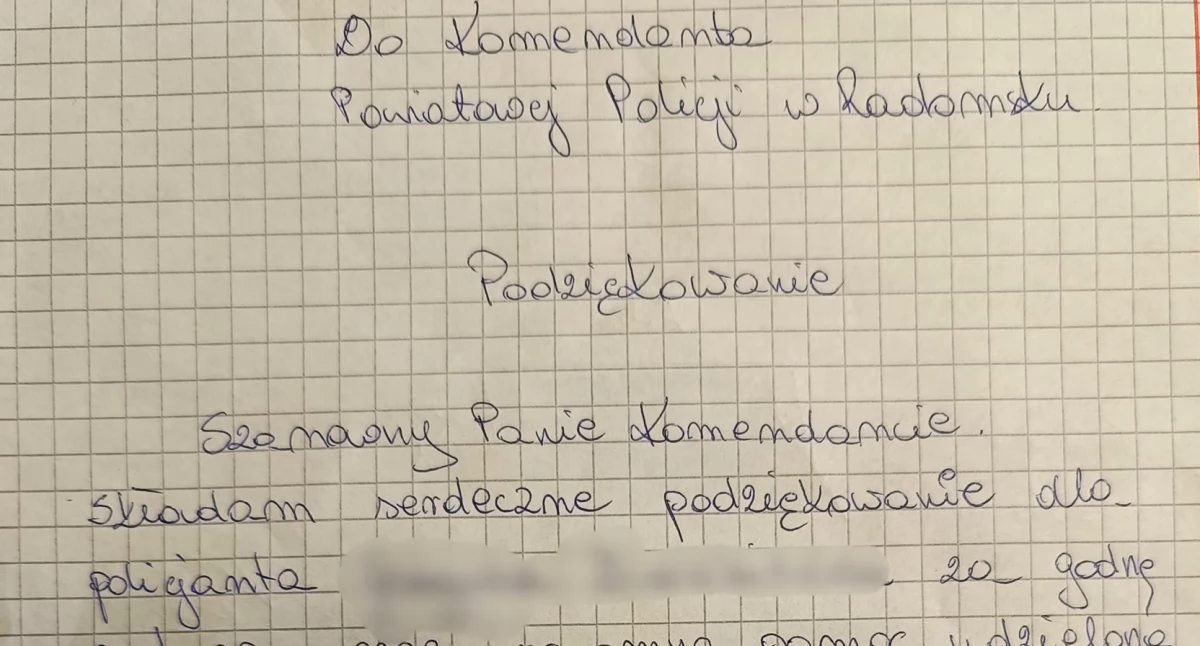 Do Komendanta
Powiatowej Policji w Radomsku.
Podziękowanie
Szanowny Panie Komendancie.
składam serdeczne podziękowanie dla
policjanta za godną
pomoc udzieloną